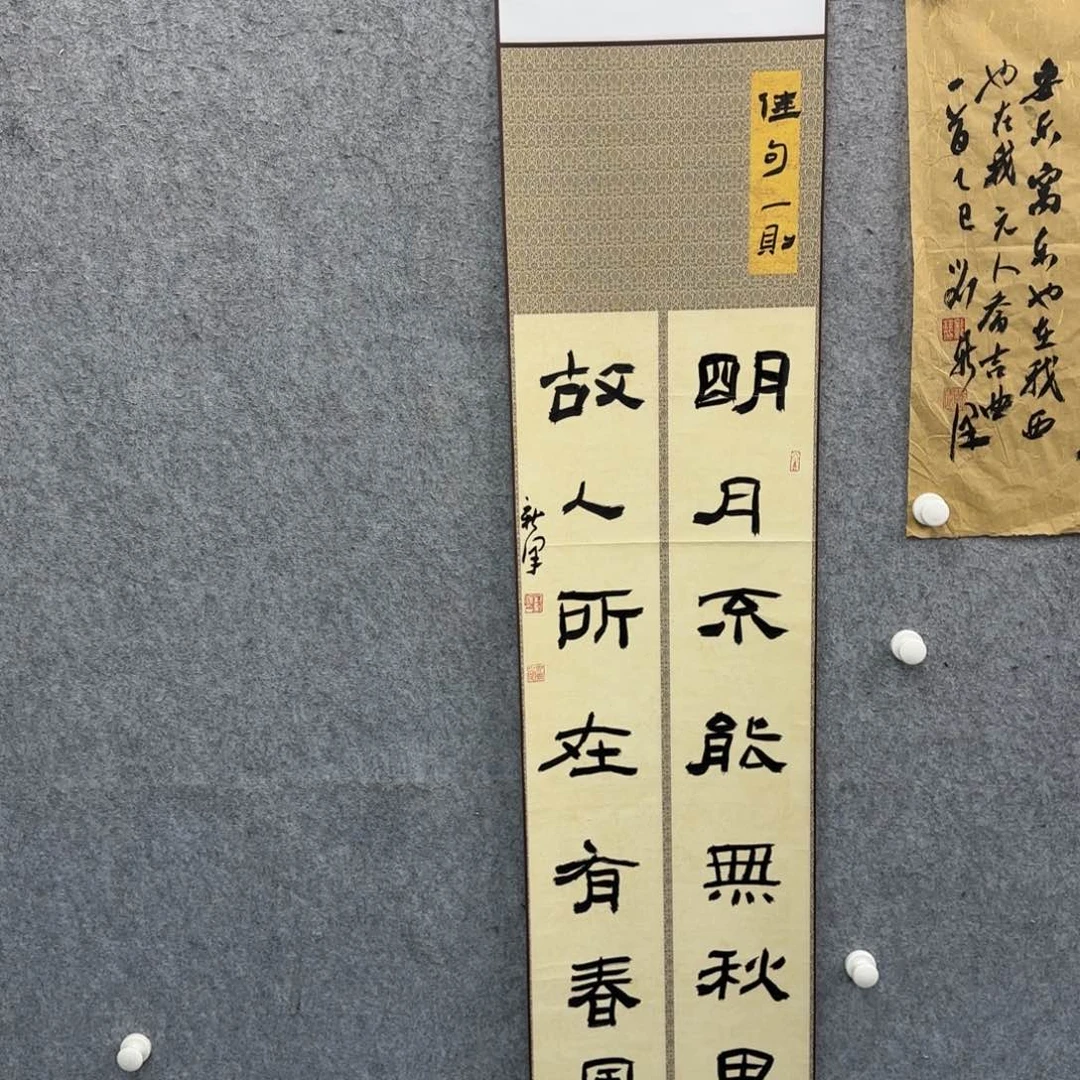 安乐窝东也在我西
也在我元人吉曲
一首乙巳新
佳句一則
明月不能無秋
故人所在有春
新